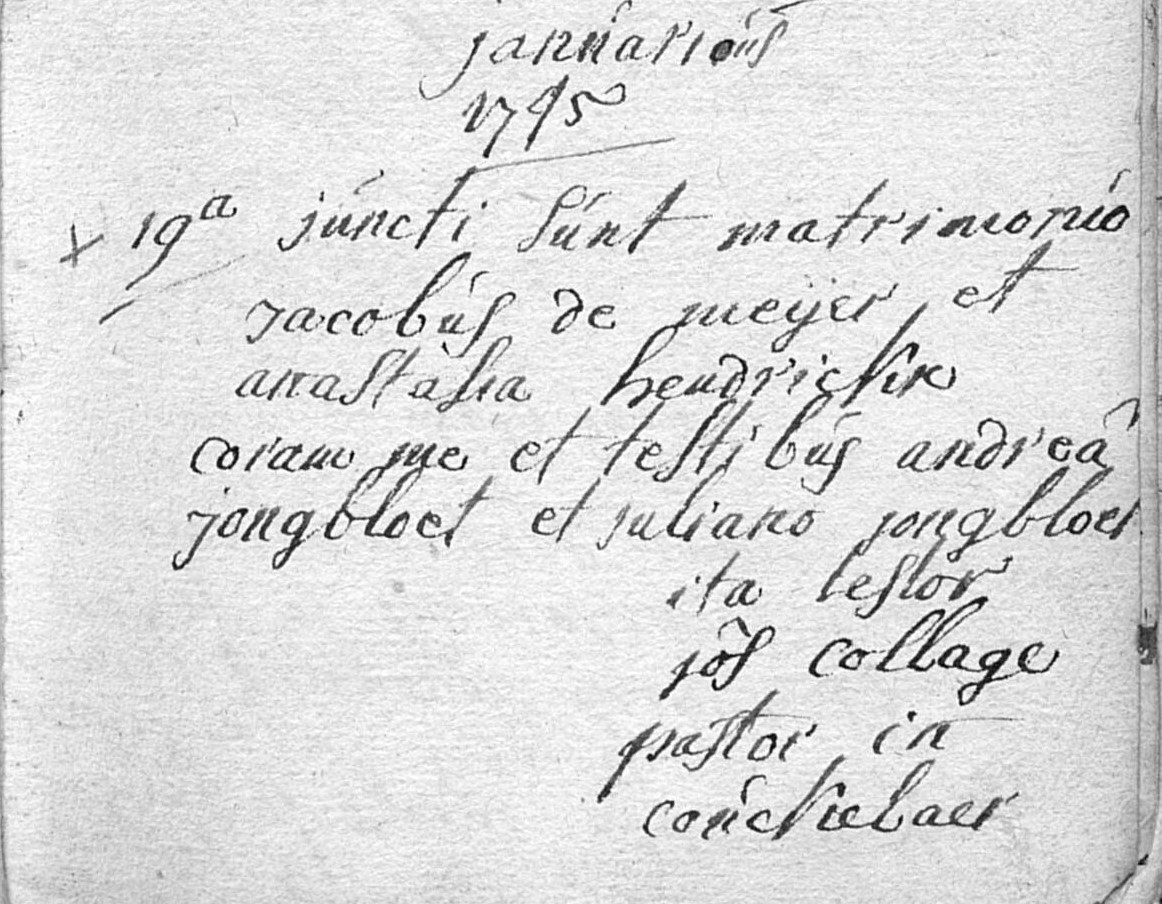 januarius
1745
x 19a juncti sunt matrimonio
Jacobus de meijer et
anastasia hendrickx
coram me et testibus andrea
jongbloet et juliano jongbloet
ita testor
jos collage
pastor in
couckelaer